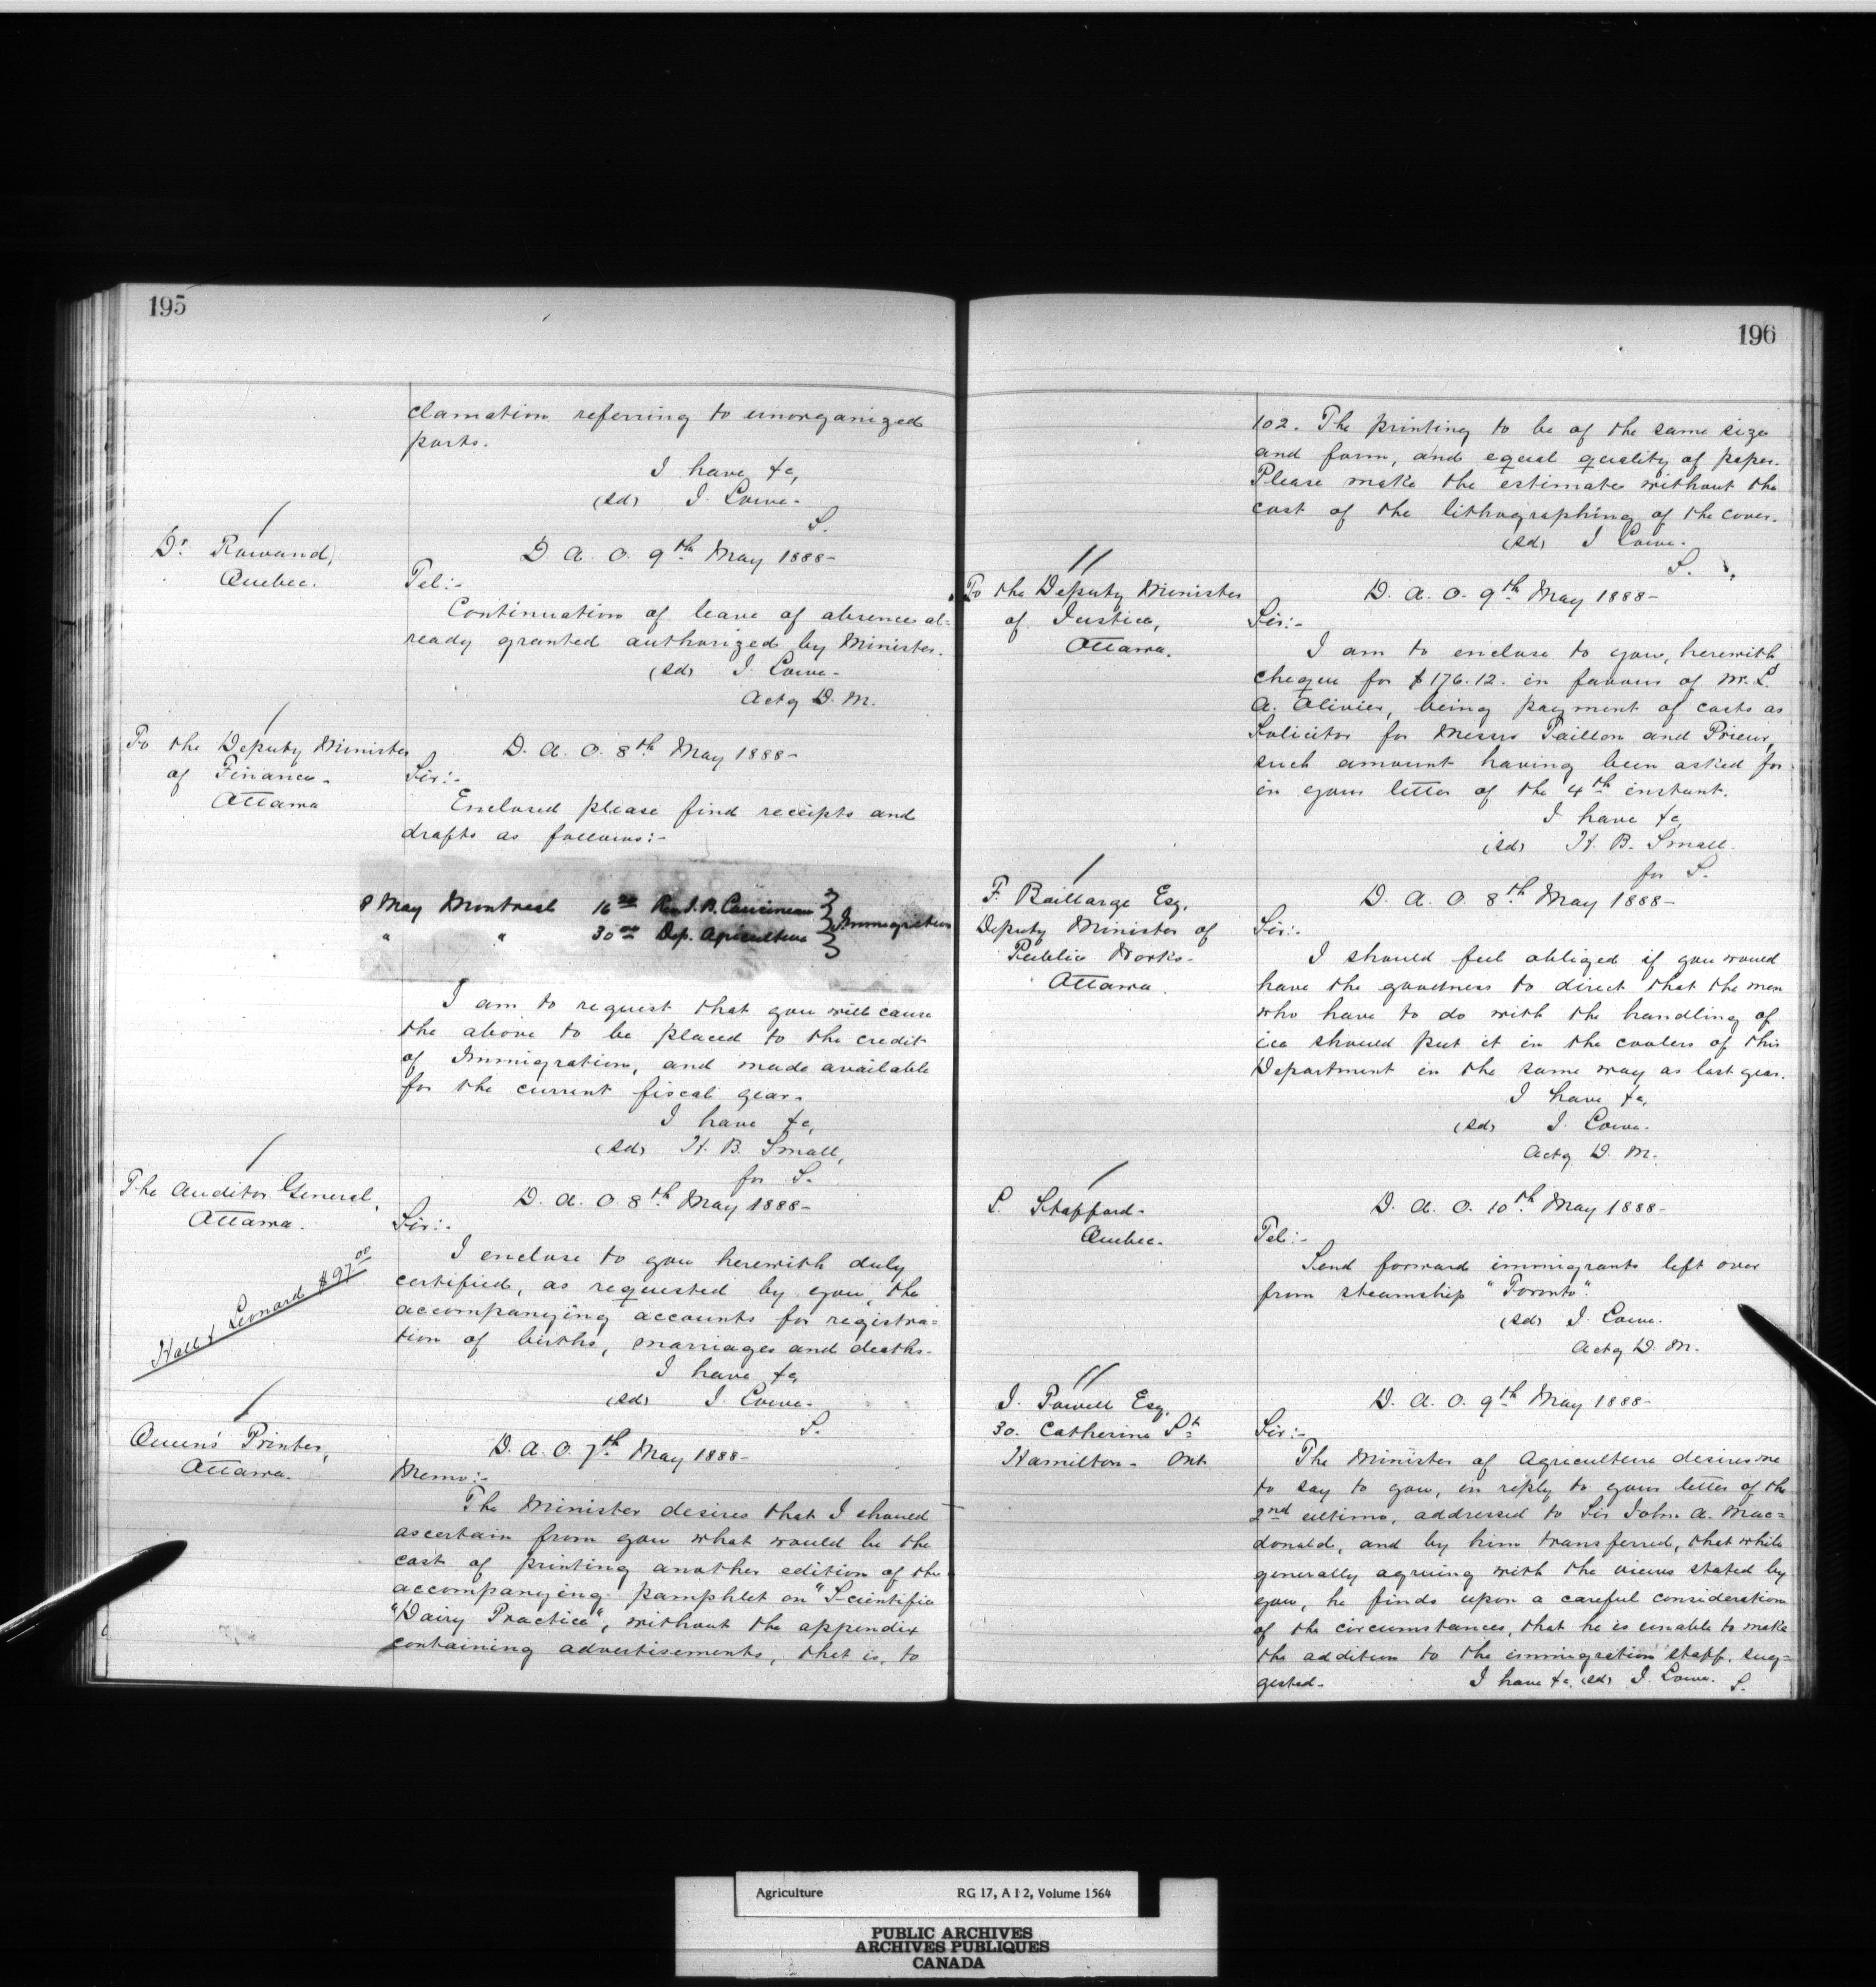 195
clamation referring to unorganized
parts.
I have &c,
(sd) J. Lowe.
S.
Dr. Rowand,
Quebec.
D. A. O. 9th May 1888-
Tel:-
Continuation of leave of absence al=
ready granted authorized by Minister.
(sd) J. Lowe-
Actg D. M.
To the Deputy Minister
of Finance-
Ottawa
D. A. O. 8th May 1888-
Sir:-
Enclosed please find receipts and
drafts as follows:-
8 May Montreal 16 Rev J. B. Immigration
" " 30 00 Dep. Agriculture
I am to request that you will cause
the above to be placed to the credit
of Immigration, and made available
for the current fiscal year.
I have &c,
(sd) H. B. Small,
for S.
The Auditor General,
Ottawa.
Hall & Leonard $97 00
D. A. O. 8th May 1888-
Sir:-
I enclose to you herewith duly
certified, as requested by you, the
accompanying accounts for registra=
tion of births, marriages and deaths.
I have &c,
(sd) J. Lowe-
S.
Queen's Printer,
Ottawa.
D. A. O. 7th May 1888-
Memo:-
The Minister desires that I should
ascertain from you what would be the
cost of printing another edition of the
accompanying pamphlet on "Scientific
"Dairy Practice", without the appendix
containing advertisements, that is, to
196
102. The printing to be of the same size
and form, and equal quality of paper.
Please make the estimate without the
cost of the lithographing of the cover.
(sd) J Lowe.
S.
To the Deputy Minister
of Justice,
Ottawa.
D. A. O. 9th May 1888-
Sir:-
I am to enclose to you, herewith
cheque for $176.12. in favour of Mr. Ls
A. Olivier, being payment of costs as
Solicitor for Messrs Taillon and Prieur,
such amount having been asked for
in your letter of the 4th instant.
I have &c
(sd) H. B. Small.
for S.
F. Baillarge Esq,
Deputy Minister of
Public Works-
Ottawa.
D. A. O. 8th May 1888-
Sir:-
I should feel obliged if you would
have the goodness to direct that the men
who have to do with the handling of
ice should put it in the coolers of this
Department in the same way as last year.
I have &c,
(sd) J. Lowe.
Actg D. M.
L. Stafford-
Quebec.
D. A. O. 10th May 1888-
Tel:-
Send forward immigrants left over
from steamship "Toronto".
(sd) J. Lowe.
Actg D. M.
J. Powell Esq,
30. Catherine St
Hamilton- Ont
D. A. O. 9th May 1888-
Sir:-
The Minister of Agriculture desires me
to say to you, in reply to your letter of the
2nd ultimo, addressed to Sir John A. Mac=
donald, and by him transferred, that while
generally agreeing with the views stated by
you, he finds upon a careful consideration
of the circumstances, that he is unable to make
the addition to the immigration staff, sug=
gested- I have &c. (sd) J. Lowe. S.
Agriculture RG 17, A I 2, Volume 1564
PUBLIC ARCHIVES
ARCHIVES PUBLIQUES
CANADA